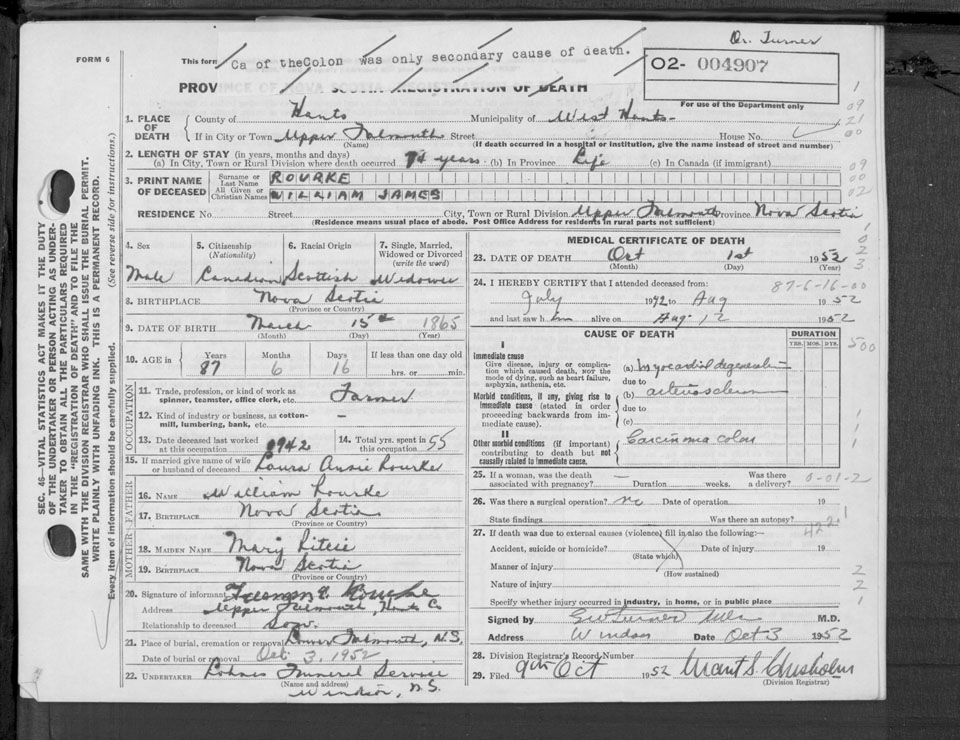 Dr. Turner
FORM 6
This form
Ca of theColon was only secondary cause of death.
O2- 004907
For use of the Department only
PROVINCE OF NOVA SCOTIA REGISTRATION OF DEATH
1. PLACE OF DEATH
County of Hants Municipality of West Hants
If in City or Town Upper Falmouth Street House No.
(Name) (If death occurred in a hospital or institution, give the name instead of street and number)
2. LENGTH OF STAY (in years, months and days)
(a) In City, Town or Rural Division where death occurred 74 years (b) In Province Life (c) In Canada (if immigrant)
3. PRINT NAME OF DECEASED
Surname or Last Name ROURKE
All Given or Christian Names WILLIAM JAMES
RESIDENCE No. Street City, Town or Rural Division Upper Falmouth Province Nova Scotia
(Residence means usual place of abode. Post Office Address for residents in rural parts not sufficient)
4. Sex
Male
5. Citizenship (Nationality)
Canadian
6. Racial Origin
Scottish
7. Single, Married, Widowed or Divorced (write the word)
Widower
8. BIRTHPLACE Nova Scotia
(Province or Country)
9. DATE OF BIRTH March 15th 1865
(Month) (Day) (Year)
10. AGE in Years Months Days If less than one day old
87 6 16 hrs. or min.
OCCUPATION
11. Trade, profession, or kind of work as spinner, teamster, office clerk, etc. Farmer
12. Kind of industry or business, as cotton-mill, lumbering, bank, etc. —
13. Date deceased last worked at this occupation 1942
14. Total yrs. spent in this occupation 55
15. If married give name of wife or husband of deceased Laura Annie Rourke
FATHER
16. NAME William Rourke
17. BIRTHPLACE Nova Scotia
(Province or Country)
MOTHER
18. MAIDEN NAME Mary
19. BIRTHPLACE Nova Scotia
(Province or Country)
20. Signature of informant Rourke
Address Upper Falmouth, Hants Co
Relationship to deceased Son
21. Place of burial, cremation or removal Lower Falmouth, N.S.
Date of burial or removal Oct 3, 1952
22. UNDERTAKER Funeral Service
(Name and address)
Windsor, N.S.
MEDICAL CERTIFICATE OF DEATH
23. DATE OF DEATH Oct 1st 1952
(Month) (Day) (Year)
24. I HEREBY CERTIFY that I attended deceased from:
87-6-16-00
July 1942 to Aug 1952
and last saw him alive on Aug 12 1952
CAUSE OF DEATH
DURATION
YRS. MOS. DYS.
I
Immediate cause
Give disease, injury or complication which caused death, not the mode of dying, such as heart failure, asphyxia, asthenia, etc.
(a) Myocardial degeneration
due to
Morbid conditions, if any, giving rise to immediate cause (stated in order proceeding backwards from immediate cause).
(b) arteriosclerosis
due to
(c)
II
Other morbid conditions (if important) contributing to death but not causally related to immediate cause.
Carcinoma colon
25. If a woman, was the death associated with pregnancy? — Duration weeks. Was there a delivery? 0-01-2
26. Was there a surgical operation? no Date of operation 19
State findings Was there an autopsy?
422.1
27. If death was due to external causes (violence) fill in also the following:
Accident, suicide or homicide? Date of injury 19
(State which)
Manner of injury
(How sustained)
Nature of injury
Specify whether injury occurred in industry, in home, or in public place
Signed by Turner M.D.
Address Windsor Date Oct 3 1952
28. Division Registrar's Record Number
29. Filed 9th Oct 1952 Grant S. Chisholm
(Division Registrar)
SEC. 46—VITAL STATISTICS ACT MAKES IT THE DUTY
OF THE UNDERTAKER OR PERSON ACTING AS UNDERTAKER TO OBTAIN ALL THE PARTICULARS REQUIRED
IN THE "REGISTRATION OF DEATH" AND TO FILE THE
SAME WITH THE DIVISION REGISTRAR WHO SHALL ISSUE THE BURIAL PERMIT.
WRITE PLAINLY WITH UNFADING INK. THIS IS A PERMANENT RECORD.
Every item of information should be carefully supplied. (See reverse side for instructions.)